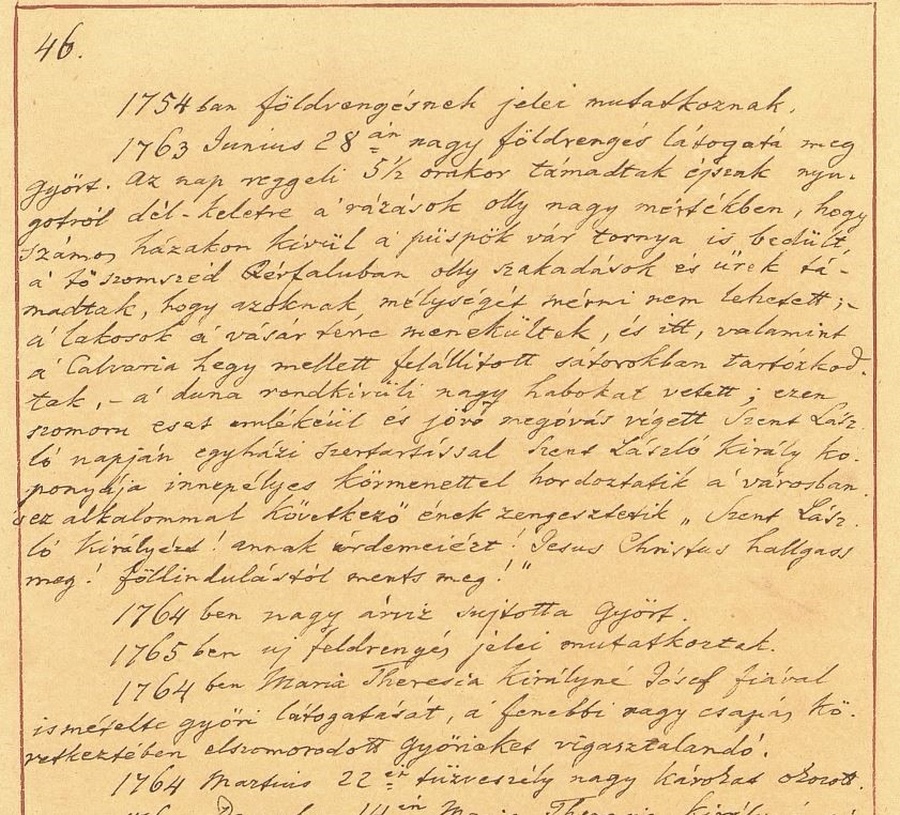 46.
1754 ban földrengésnek jelei mutatkoznak.
1763 Junius 28 án nagy földrengés látogatá meg
győrt. az nap reggeli 5½ orakor támadtak éjszak nyu-
gotról dél-keletre a' rázások olly nagy mértékben, hogy
számos házakon kívül a' püspök vár tornya is bedült,
a' tő szomszéd Rérfaluban olly szakadások és űrek tá-
madtak, hogy azoknak mélységét mérni nem lehetett;-
a' lakosok a' vásar térre menekültek, és itt, valamint
a' Calvaria hegy mellett felállitott sátorokban tartózkod-
tak, - a' duna rendkivüli nagy habokat vetett; ezen
szomoru eset emlékéül és jövő megóvás végett Szent Lász-
ló napján egyházi szertartással Szent László Király ko-
ponyája innepélyes körmenettel hordoztatik a' városban
's ez alkalommal következő ének zengesztetik „ Szent Lász-
ló Királyért! annak érdemeiért! Jesus Christus hallgass
meg! földindulástól ments meg!"
1764 ben nagy árviz sujtotta Győrt.
1765 ben uj feldrengés jelei mutatkoztak.
1764 ben Maria Theresia Királyné Jósef fiával
ismételte győri látogatását, a' fenebbi nagy csapás kö-
vetkeztében elszomorodott Győrieket vigasztalandó.
1764 Martius 22 én tüzveszély nagy károkat okozott.